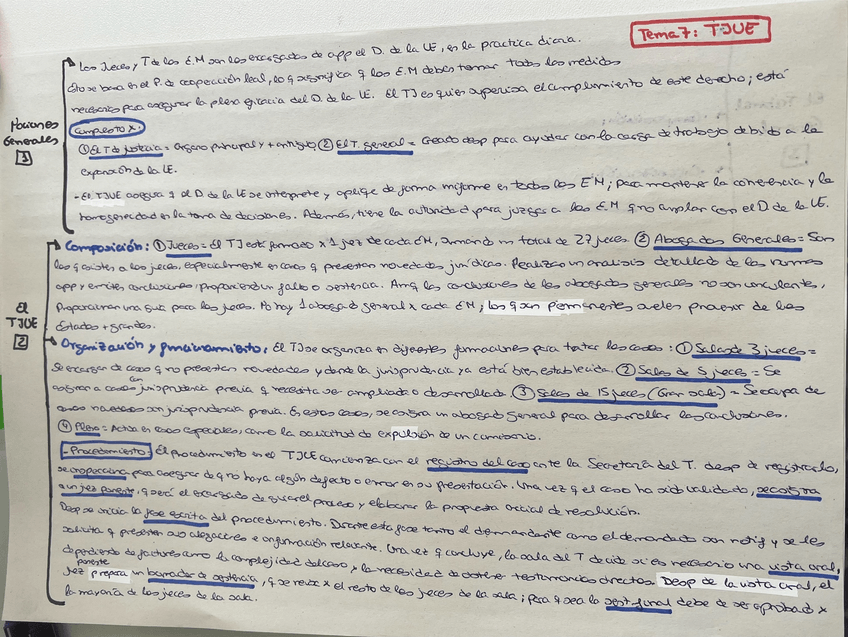 Tema 7: TJUE
Nociones Generales
1
Los Jueces y T de los E.M son los encargados de app el D. de la UE, en la practica diaria.
Esto se basa en el P. de cooperación leal, lo q significa q los E.M deben tomar todas las medidas
necesarias para asegurar la plena eficacia del D. de la UE. El TJ es quien supervisa el cumplimiento de este derecho; está
compuesto x:
① El T de justicia = Órgano principal y + antiguo; ② El T. general = Creado desp para ayudar con la carga de trabajo debido a la
expansión de la UE.
- El TJUE asegura q el D de la UE se interprete y aplique de forma uniforme en todos los EM; para mantener la coherencia y la
homogeneidad en la toma de decisiones. Además, tiene la autoridad para juzgar a los E.M q no cumplan con el D de la UE.
El TJUE
2
Composición: ① Jueces = El TJ está formado x 1 juez de cada EM, sumando un total de 27 jueces. ② Abogados Generales = Son
los q asisten a los jueces, especialmente en casos q presentan novedades jurídicas. Realizan un analisis detallado de las normas
app y emiten conclusiones, proponiendo un fallo o sentencia. Aunq las conclusiones de los abogados generales no son vinculantes,
proporcionan una guía para los jueces. No hay 1 abogado general x cada EM, los q son permanentes suelen provenir de los
Estados + grandes.
Organización y funcionamiento: El TJ se organiza en diferentes formaciones para tratar los casos: ① Salas de 3 jueces =
Se encargan de casos q no presentan novedades y donde la jurisprudencia ya está bien establecida. ② Salas de 5 jueces = Se
asignan a casos con jurisprudencia previa q necesita ser ampliada o desarrollada. ③ Salas de 15 jueces (Gran sala) = Se ocupa de
casos novedosos sin jurisprudencia previa. En estos casos, se asigna un abogado general para desarrollar las conclusiones.
④ Pleno = Actúa en casos especiales, como la solicitud de expulsión de un comisario.
- Procedimiento: El procedimiento en el TJUE comienza con el registro del caso ante la Secretaría del T. desp de registrarlo,
se inspecciona para asegurar de q no haya algún defecto o error en su presentación. Una vez q el caso ha sido validado, se asigna
a un juez ponente, q será el encargado de guiar el proceso y elaborar la propuesta inicial de resolución.
Desp se inicia la fase escrita del procedimiento. Durante esta fase tanto el demandante como el demandado son notif y se les
solicita q presenten sus alegaciones e información relevante. Una vez q concluye, la sala del T decide si es necesario una vista oral,
dependiendo de factores como la complejidad del caso y la necesidad de obtener testimonios directos. Desp de la vista oral, el
juez ponente prepara un borrador de sentencia, q se revisa x el resto de los jueces de la sala; para q sea la sent final debe de ser aprobada x
la mayoría de los jueces de la sala.